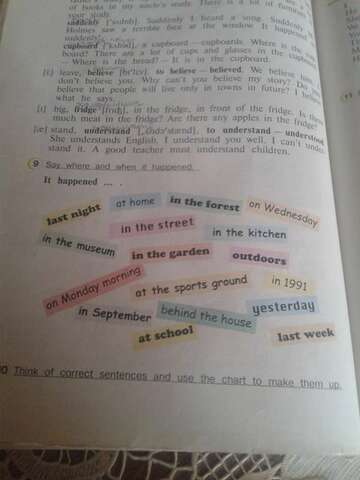 of books in my uncle's study. There is a lot of
your study.
suddenly Suddenly I heard a song. Suddenly
Holmes saw a terrible face at the window. It happened
suddenly.
cupboard a cupboard — cupboards. Where is the
board? There are a lot of cups and glasses in the cupboard.
— Where is the bread? — It is in the cupboard.
[i:] leave, believe to believe — believed. We believe
don't believe you. Why can't you believe my story? Do
believe that people will live only in towns in future? I believe
what he says.
[ɪ] big, fridge in the fridge, in front of the fridge. Is there
much meat in the fridge? Are there any apples in the fridge?
[æ] stand, understand to understand — understood
She understands English. I understand you well. I can't under-
stand it. A good teacher must understand children.
9 Say where and when it happened.
It happened ... .
last night
at home
in the forest
on Wednesday
in the street
in the kitchen
in the museum
in the garden
outdoors
on Monday morning
at the sports ground
in 1991
in September
behind the house
yesterday
at school
last week
10 Think of correct sentences and use the chart to make them up.